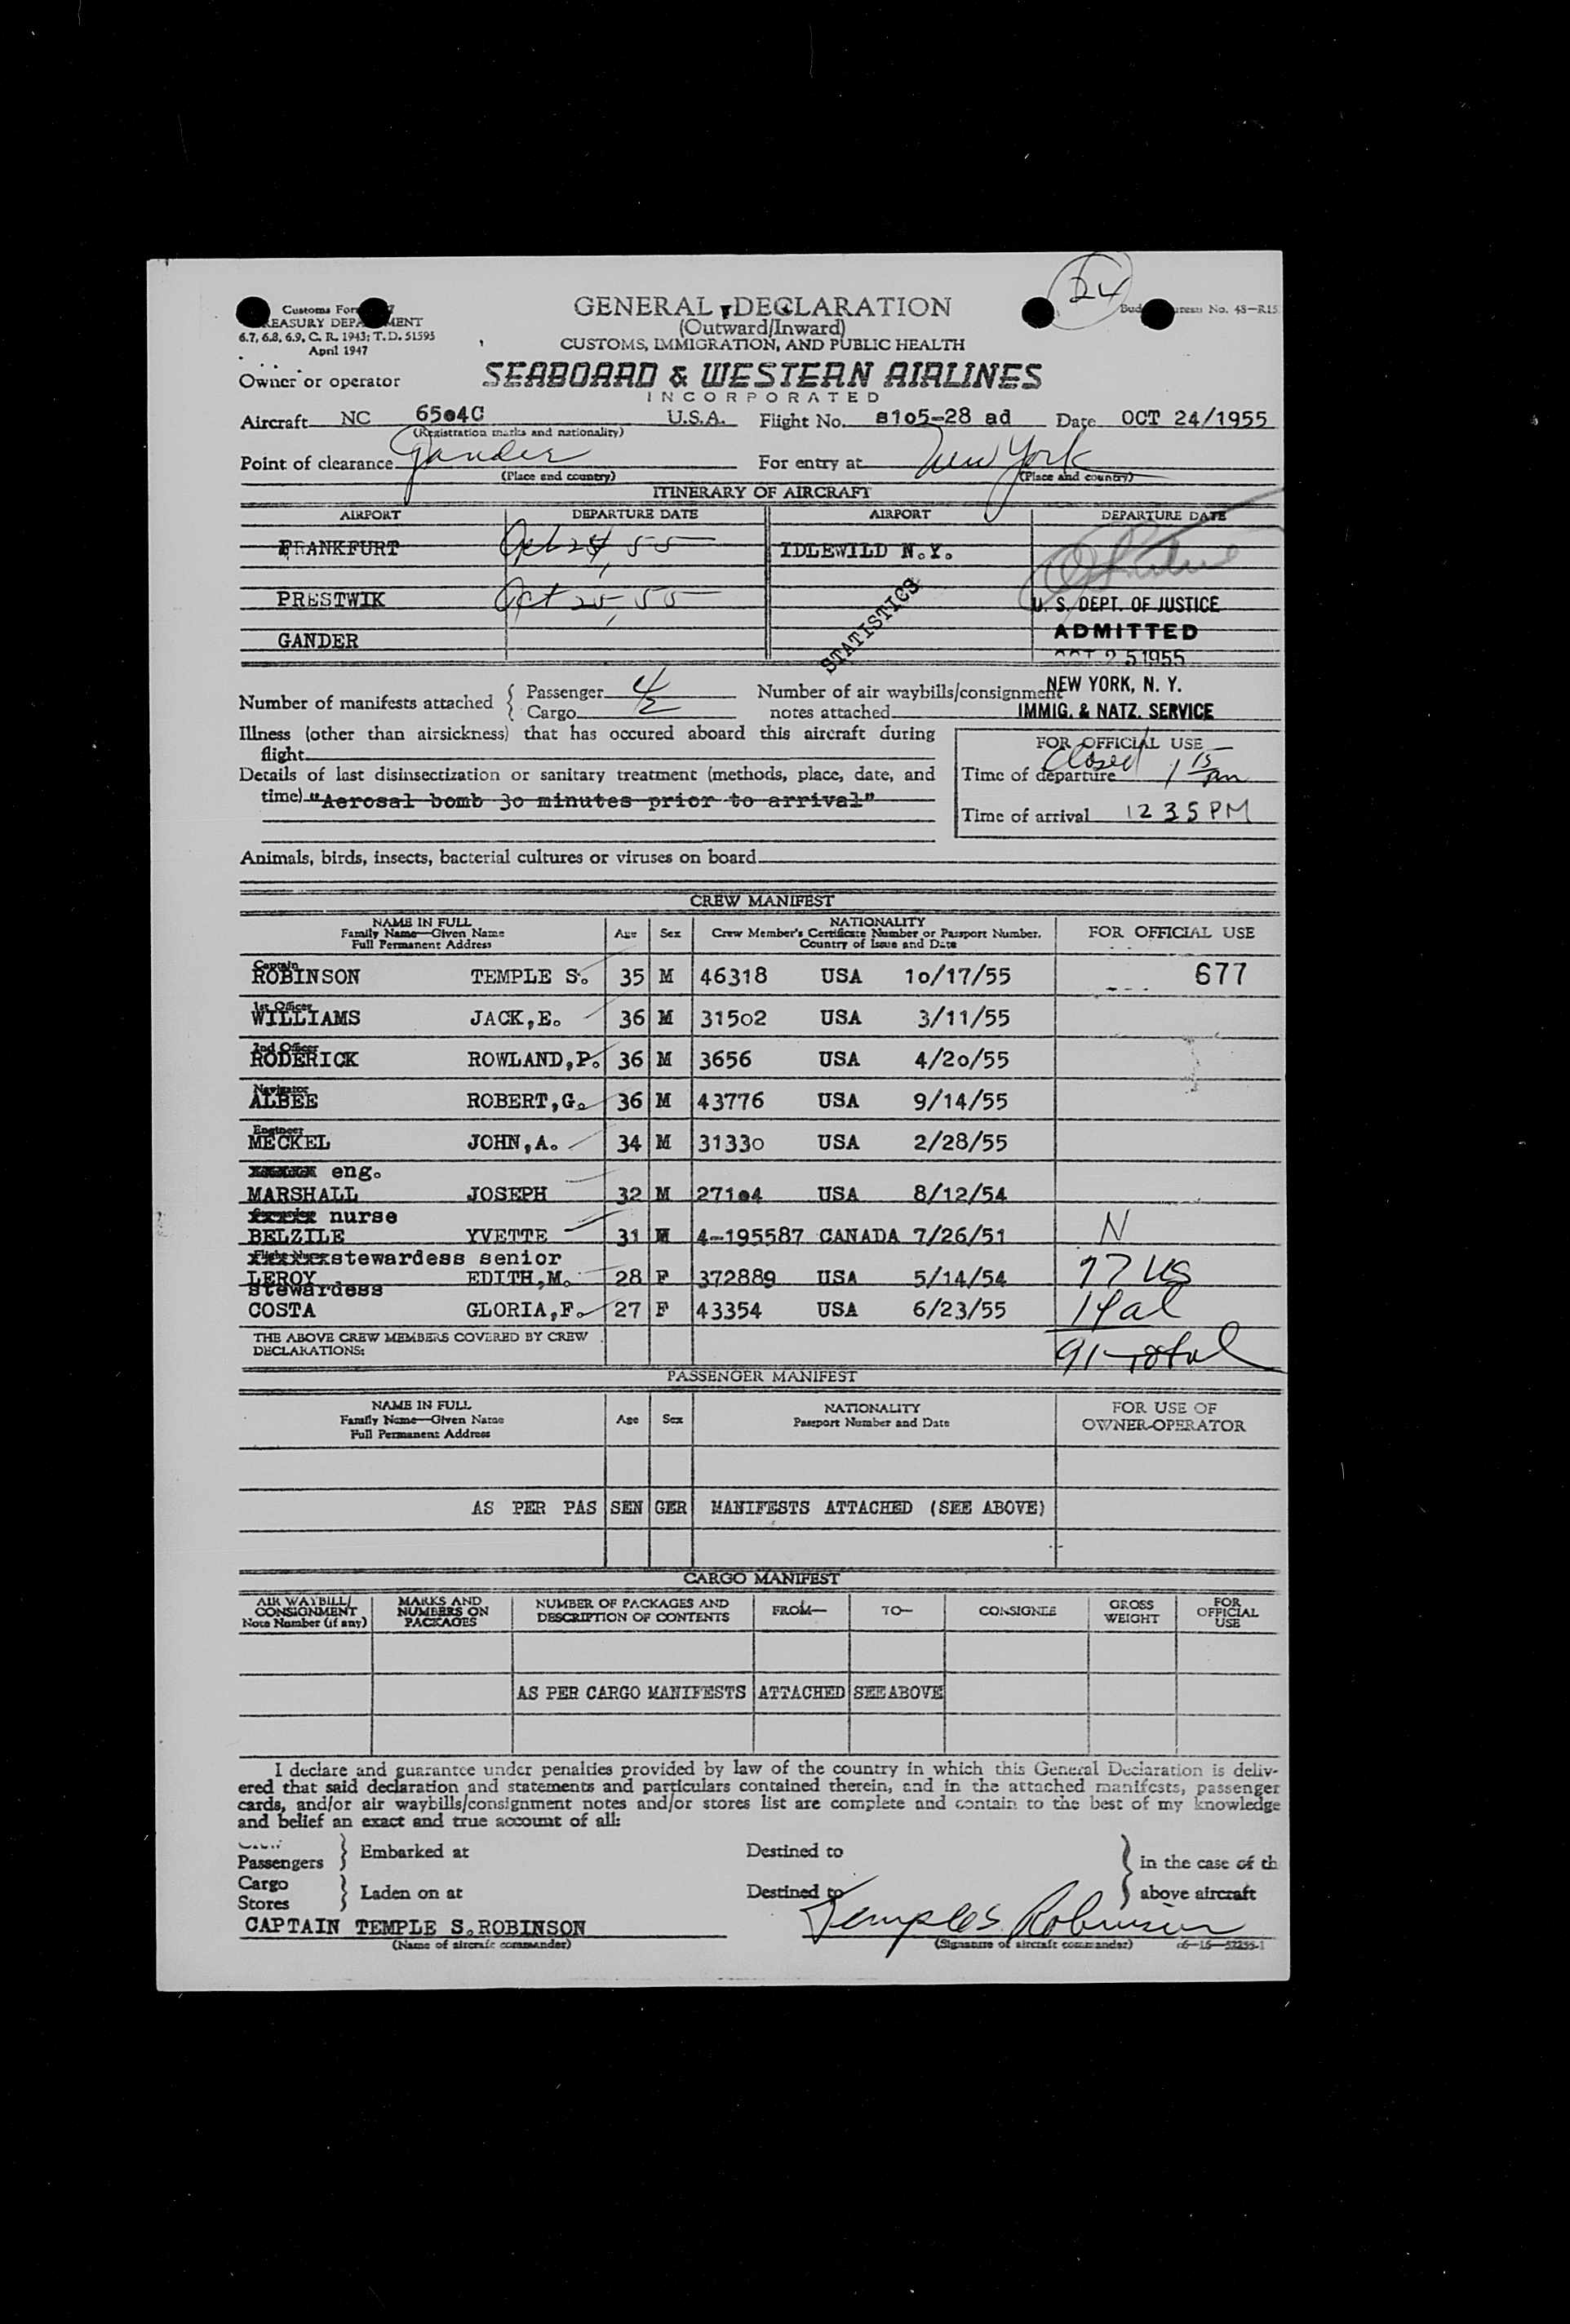 24
Customs Form 7
TREASURY DEPARTMENT
6.7, 6.8, 6.9, C. R. 1943; T. D. 51595
April 1947
Bureau No. 48—R15
GENERAL DECLARATION
(Outward/Inward)
CUSTOMS, IMMIGRATION, AND PUBLIC HEALTH
Owner or operator SEABOARD & WESTERN AIRLINES
INCORPORATED
Aircraft NC 6504C U.S.A. Flight No. 8105-28 ad Date OCT 24/1955
(Registration marks and nationality)
Point of clearance Gander For entry at New York
(Place and country) (Place and country)
ITINERARY OF AIRCRAFT
AIRPORT DEPARTURE DATE AIRPORT DEPARTURE DATE
FRANKFURT Oct 24, 55 IDLEWILD N.Y.
PRESTWIK Oct 25, 55
GANDER
STATISTICS
U. S. DEPT. OF JUSTICE
ADMITTED
OCT 25 1955
NEW YORK, N. Y.
IMMIG. & NATZ. SERVICE
Number of manifests attached { Passenger 4 Number of air waybills/consignment
Cargo 2 notes attached
Illness (other than airsickness) that has occured aboard this aircraft during
flight
Details of last disinsectization or sanitary treatment (methods, place, date, and
time) "Aerosal bomb 30 minutes prior to arrival"
FOR OFFICIAL USE
Closed
Time of departure 1 15 pm
Time of arrival 12 35 PM
Animals, birds, insects, bacterial cultures or viruses on board
CREW MANIFEST
NAME IN FULL
Family Name—Given Name
Full Permanent Address
Age Sex
NATIONALITY
Crew Member's Certificate Number or Passport Number.
Country of Issue and Date
FOR OFFICIAL USE
Captain
ROBINSON TEMPLE S. 35 M 46318 USA 10/17/55 677
1st Officer
WILLIAMS JACK,E. 36 M 31502 USA 3/11/55
2nd Officer
RODERICK ROWLAND,P. 36 M 3656 USA 4/20/55
Navigator
ALBEE ROBERT,G. 36 M 43776 USA 9/14/55
Engineer
MECKEL JOHN,A. 34 M 31330 USA 2/28/55
eng.
MARSHALL JOSEPH 32 M 27104 USA 8/12/54
nurse
BELZILE YVETTE 31 4-195587 CANADA 7/26/51 N
stewardess senior
LEROY EDITH,M. 28 F 372889 USA 5/14/54 77 US
stewardess
COSTA GLORIA,F. 27 F 43354 USA 6/23/55 14 al
THE ABOVE CREW MEMBERS COVERED BY CREW
DECLARATIONS:
91 total
PASSENGER MANIFEST
NAME IN FULL
Family Name—Given Name
Full Permanent Address
Age Sex
NATIONALITY
Passport Number and Date
FOR USE OF
OWNER-OPERATOR
AS PER PAS SEN GER MANIFESTS ATTACHED (SEE ABOVE)
CARGO MANIFEST
AIR WAYBILL/
CONSIGNMENT
Note Number (if any)
MARKS AND
NUMBERS ON
PACKAGES
NUMBER OF PACKAGES AND
DESCRIPTION OF CONTENTS
FROM— TO— CONSIGNEE
GROSS
WEIGHT
FOR
OFFICIAL
USE
AS PER CARGO MANIFESTS ATTACHED SEE ABOVE
I declare and guarantee under penalties provided by law of the country in which this General Declaration is deliv-
ered that said declaration and statements and particulars contained therein, and in the attached manifests, passenger
cards, and/or air waybills/consignment notes and/or stores list are complete and contain to the best of my knowledge
and belief an exact and true account of all:
Crew
Passengers } Embarked at Destined to } in the case of th
Cargo
Stores } Laden on at Destined to } above aircraft
CAPTAIN TEMPLE S.ROBINSON Temple S. Robinson
(Name of aircraft commander) (Signature of aircraft commander)